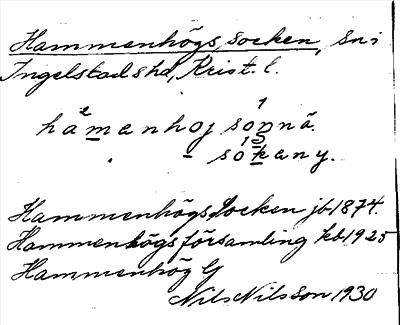 Hammenhögs socken, sn i
Ingelstads hd, Krist. l.
hamenhoj sonna.
- sokany.
Hammenhögs Socken jb 1874.
Hammenhögs församling kb 1925
Hammenhög G
Nils Nilsson 1930